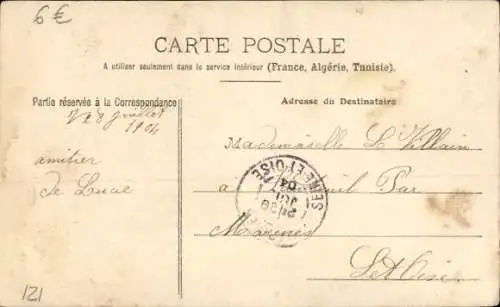 6€
CARTE POSTALE
A utiliser seulement dans le service intérieur (France, Algérie, Tunisie).
Partie réservée à la Correspondance
Adresse du Destinataire
28 Juillet
1904
Mademoiselle Le Villain
amitier
de Lucie
a Par
SEINE-ET-OISE
JUIL
04
Marines
Set Oise
121